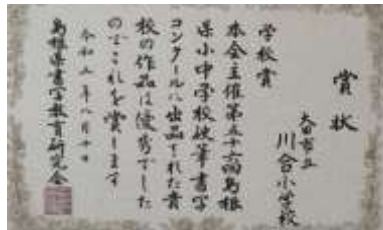 賞状
大田市立
川合小学校
学校賞
本会主催第五十回島根
県小中学校硬筆書写
コンクールに出品された貴
校の作品は優秀でした
のでこれを賞します
令和年八月十日
島根県書写教育研究会